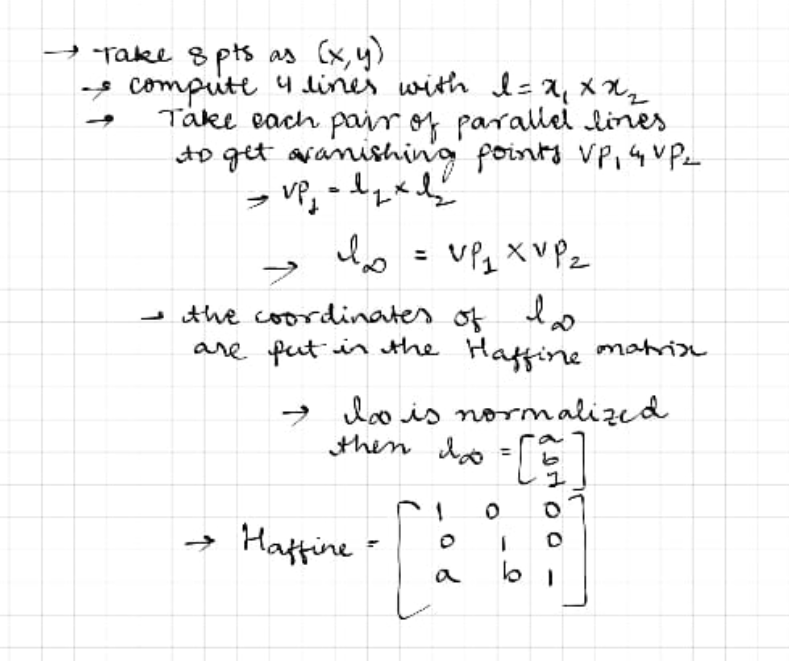 → Take 8 pts as (x,y)
→ compute 4 lines with l = x₁ × x₂
→ Take each pair of parallel lines
to get vanishing points VP₁ & VP₂
→ VP₁ = l₁ × l₂
→ l∞ = VP₁ × VP₂
→ the coordinates of l∞
are put in the Haffine matrix
→ l∞ is normalized
then l∞ = [a b 1]
→ Haffine = [1 0 0
0 1 0
a b 1]